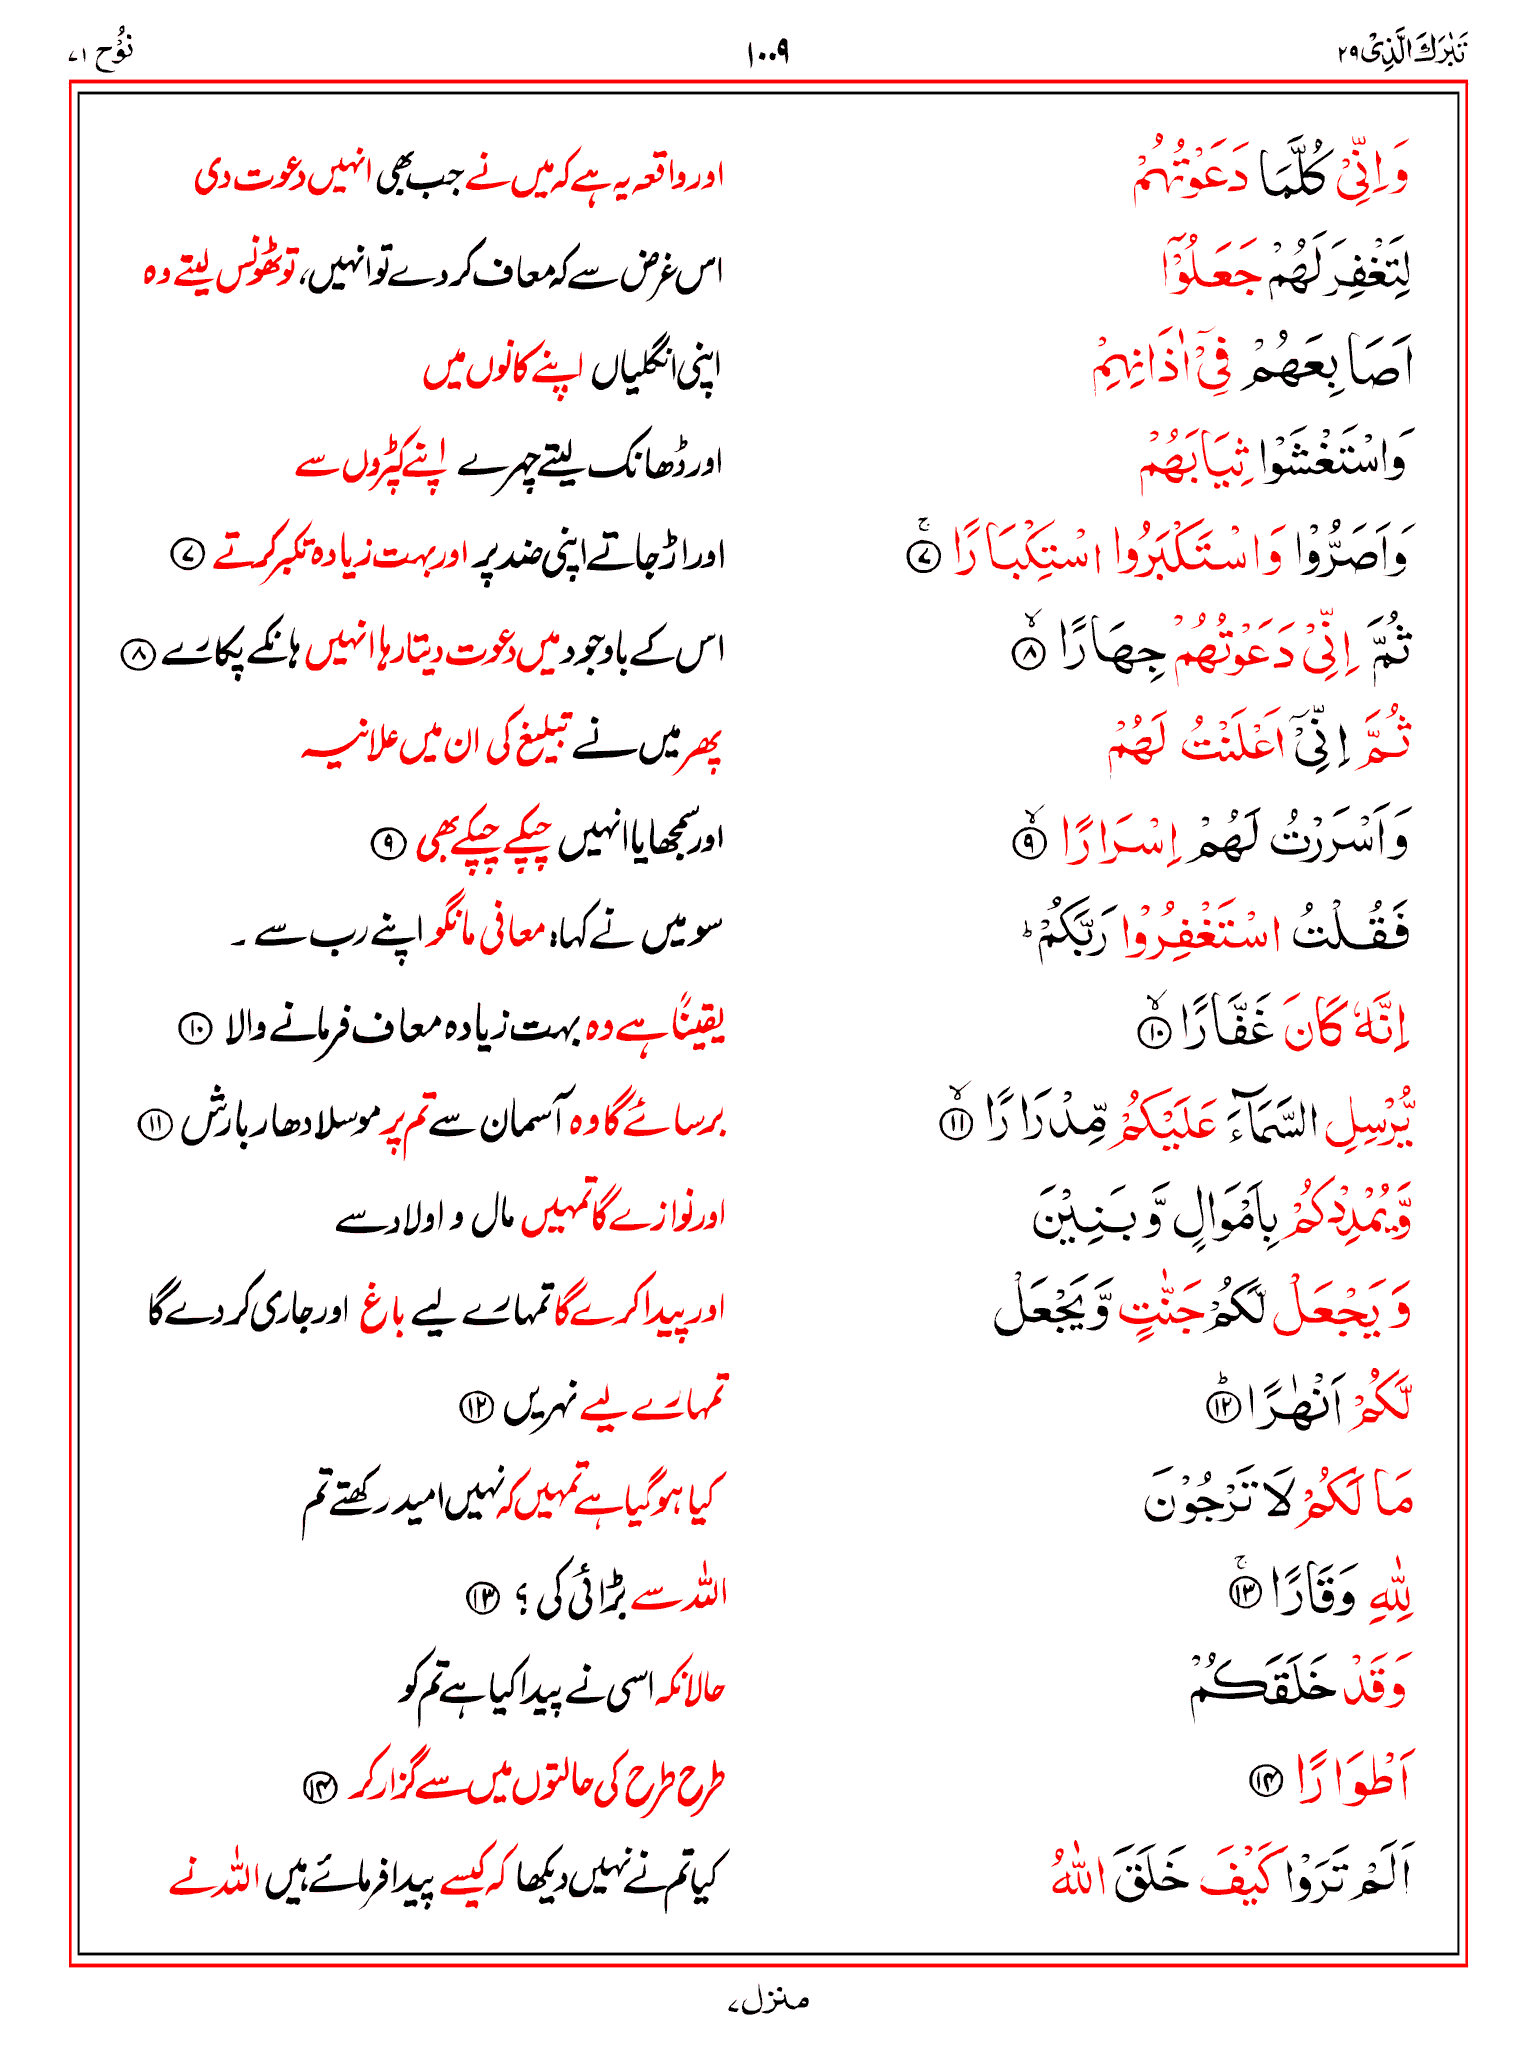 تَبٰرَكَ الَّذِیْ ۲۹ ۱۰۰۹ نُوْح ۷۱
وَاِنِّیْ كُلَّمَا دَعَوْتُهُمْ اور واقعہ یہ ہے کہ میں نے جب بھی انہیں دعوت دی
لِتَغْفِرَ لَهُمْ جَعَلُوْۤا اس غرض سے کہ معاف کر دے تو انہیں، تو ٹھونس لیتے وہ
اَصَابِعَهُمْ فِیْۤ اٰذَانِهِمْ اپنی انگلیاں اپنے کانوں میں
وَاسْتَغْشَوْا ثِیَابَهُمْ اور ڈھانک لیتے چہرے اپنے کپڑوں سے
وَاَصَرُّوْا وَاسْتَكْبَرُوا اسْتِكْبَارًا ۚ ۷ اور اڑ جاتے اپنی ضد پر اور بہت زیادہ تکبر کرتے ۷
ثُمَّ اِنِّیْ دَعَوْتُهُمْ جِهَارًا ۙ ۸ اس کے باوجود میں دعوت دیتا رہا انہیں ہانکے پکارے ۸
ثُمَّ اِنِّیْۤ اَعْلَنْتُ لَهُمْ پھر میں نے تبلیغ کی ان میں علانیہ
وَاَسْرَرْتُ لَهُمْ اِسْرَارًا ۙ ۹ اور سمجھایا انہیں چپکے چپکے بھی ۹
فَقُلْتُ اسْتَغْفِرُوْا رَبَّكُمْ ؕ سو میں نے کہا: معافی مانگو اپنے رب سے ۔
اِنَّهٗ كَانَ غَفَّارًا ۙ ۱۰ یقیناً ہے وہ بہت زیادہ معاف فرمانے والا ۱۰
یُّرْسِلِ السَّمَآءَ عَلَیْكُمْ مِّدْرَارًا ۙ ۱۱ برسائے گا وہ آسمان سے تم پر موسلا دھار بارش ۱۱
وَّیُمْدِدْكُمْ بِاَمْوَالٍ وَّبَنِیْنَ اور نوازے گا تمہیں مال و اولاد سے
وَیَجْعَلْ لَّكُمْ جَنّٰتٍ وَّیَجْعَلْ اور پیدا کرے گا تمہارے لیے باغ اور جاری کر دے گا
لَّكُمْ اَنْهٰرًا ؕ ۱۲ تمہارے لیے نہریں ۱۲
مَا لَكُمْ لَا تَرْجُوْنَ کیا ہو گیا ہے تمہیں کہ نہیں امید رکھتے تم
لِلّٰهِ وَقَارًا ۚ ۱۳ اللہ سے بڑائی کی ؟ ۱۳
وَقَدْ خَلَقَكُمْ حالانکہ اسی نے پیدا کیا ہے تم کو
اَطْوَارًا ۱۴ طرح طرح کی حالتوں میں سے گزار کر ۱۴
اَلَمْ تَرَوْا كَیْفَ خَلَقَ اللّٰهُ کیا تم نے نہیں دیکھا کہ کیسے پیدا فرمائے ہیں اللہ نے
منزل ۷